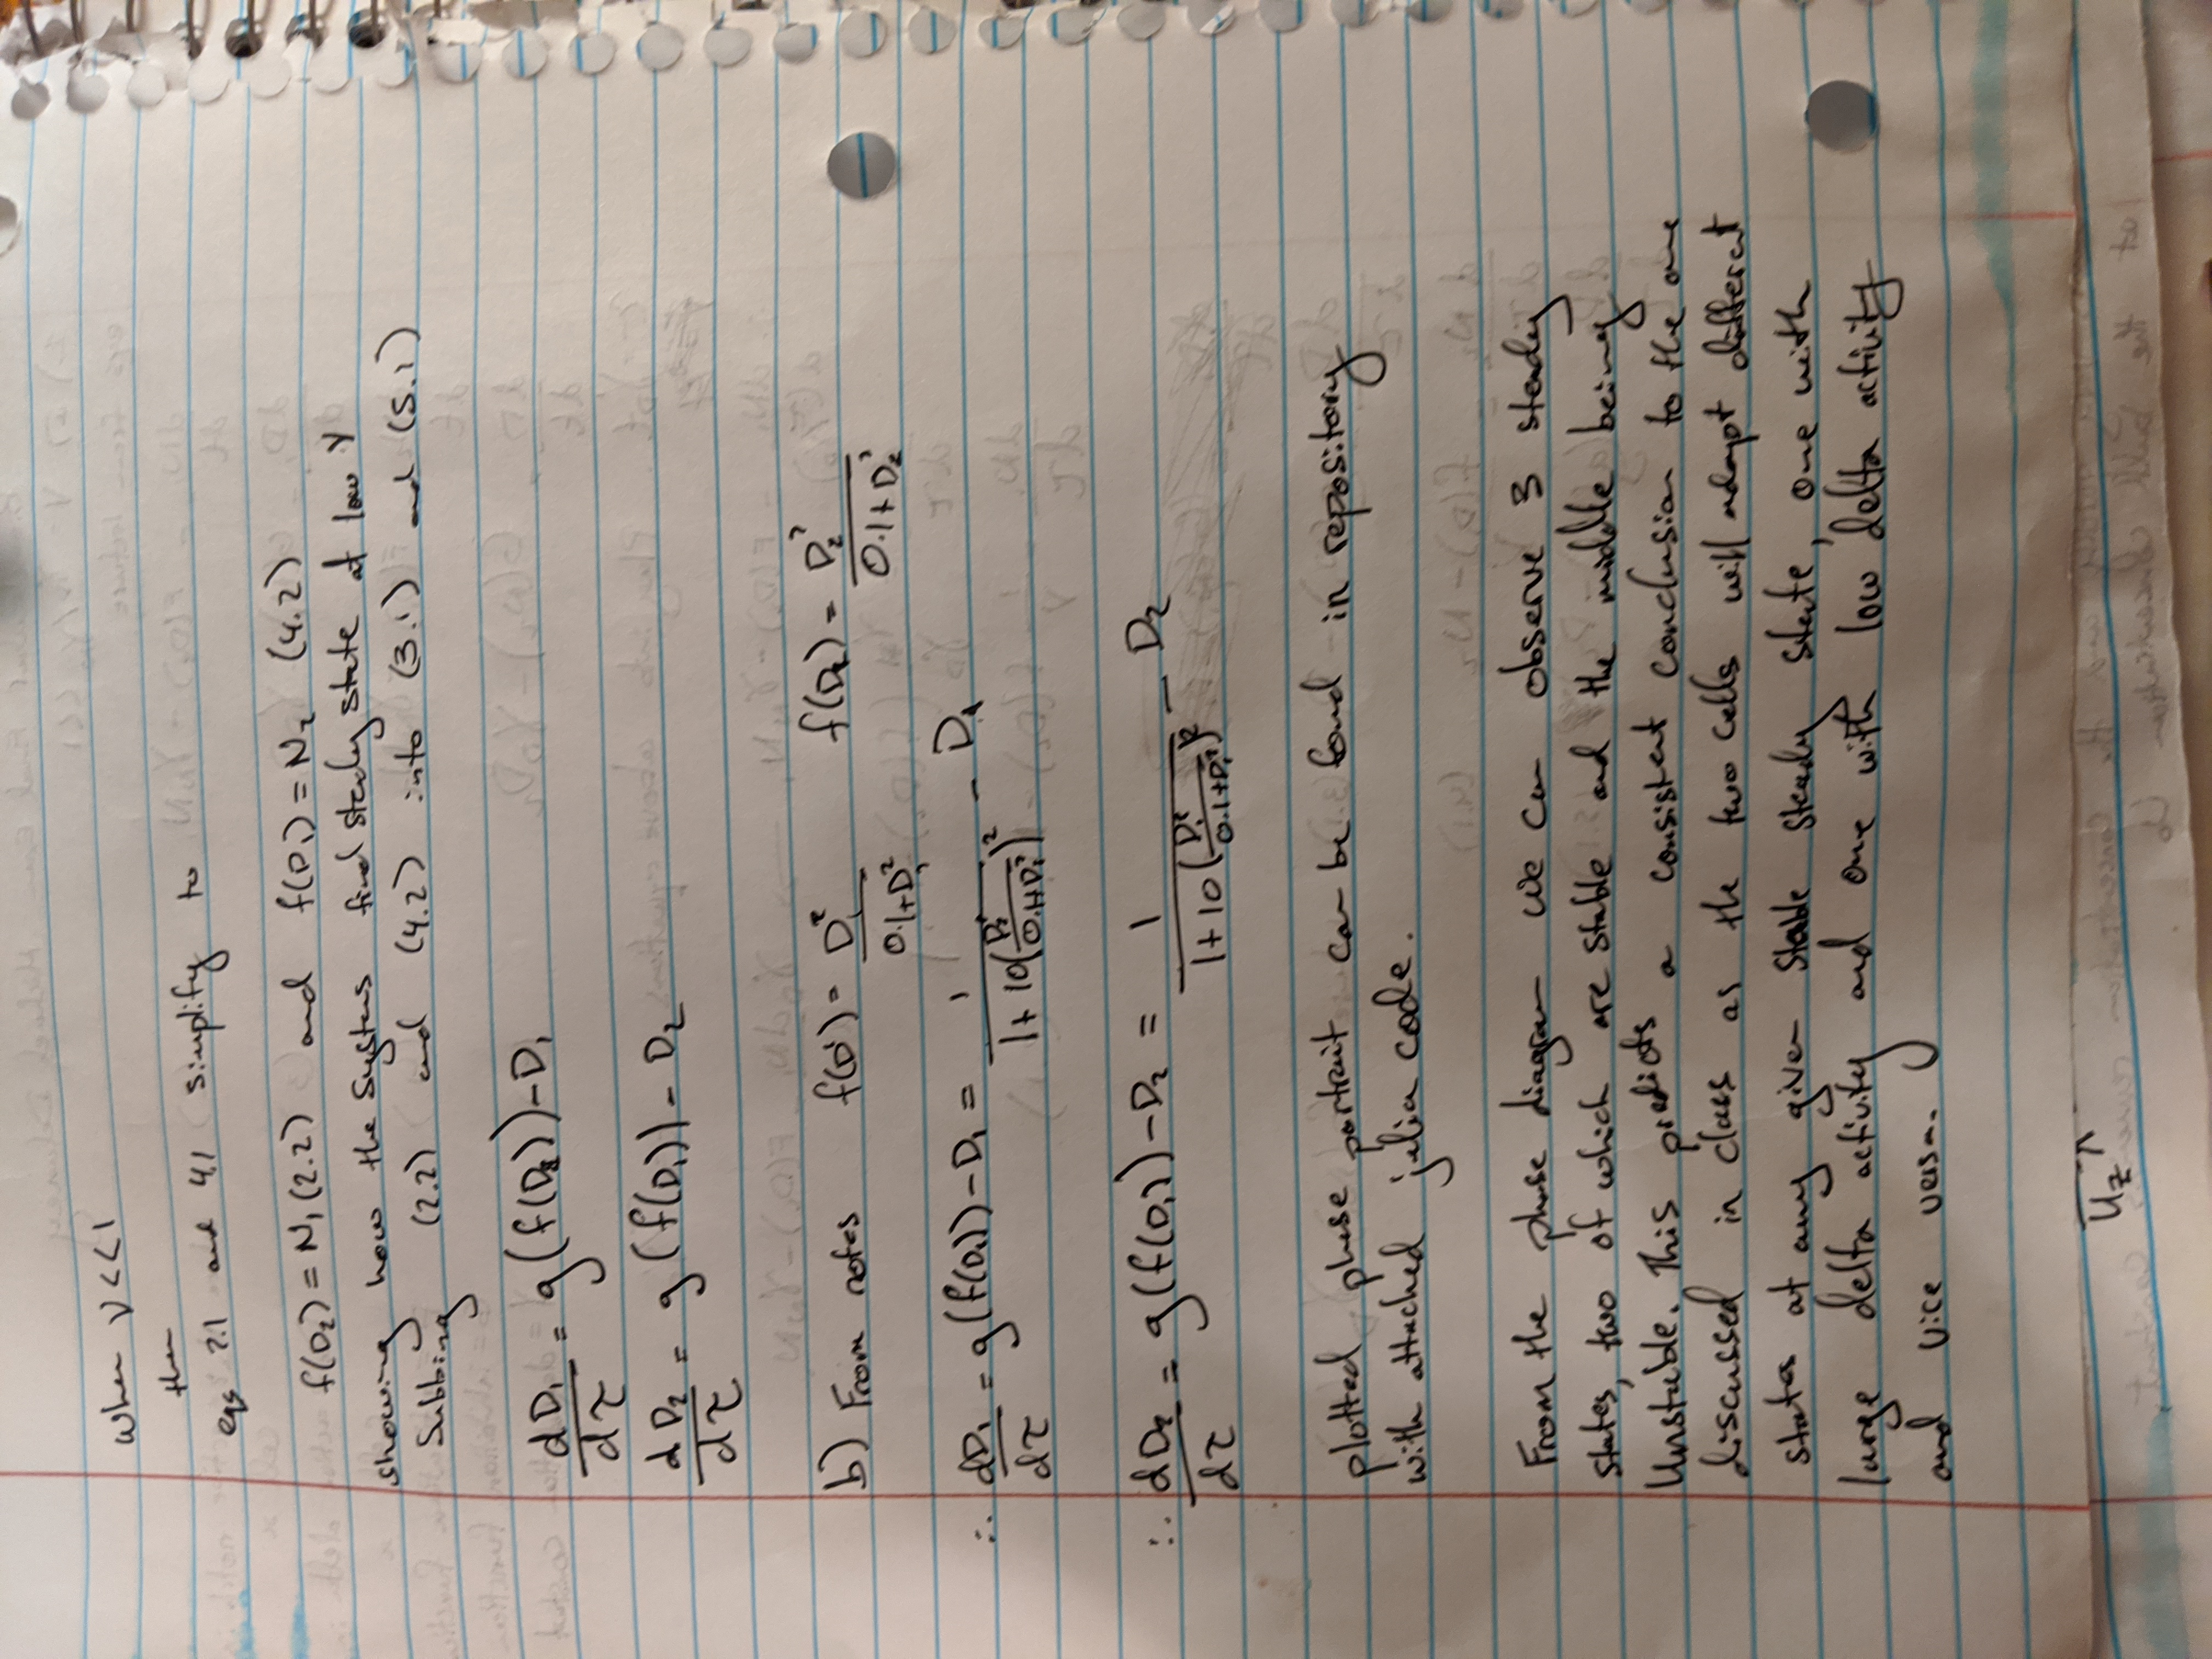 When V<<1
then
eqs 2.1 and 4.1 simplify to
f(D₂) = N₁ (2.2) and f(D₁) = N₂ (4.2)
showing how the systems find steady state at low V
Subbing (2.2) and (4.2) into (3.1) and (5.1)
dD₁/dτ = g(f(D₂)) - D₁
dD₂/dτ = g(f(D₁)) - D₂
b) From notes f(D¹) = D₁²/(0.1+D₁²) f(D₂) = D₂²/(0.1+D₂²)
∴ dD₁/dτ = g(f(D₂)) - D₁ = 1/(1+10(D₂²/(0.1+D₂²))²) - D₁
∴ dD₂/dτ = g(f(D₁)) - D₂ = 1/(1+10(D₁²/(0.1+D₁²))²) - D₂
plotted phase portrait can be found in repository
with attached julia code.
From the phase diagram we can observe 3 steady
states, two of which are stable and the middle being
Unstable. This predicts a consistent conclusion to the one
discussed in class as the two cells will adopt different
states at any given stable steady state, one with
large delta activity and one with low delta activity
and vice versa.
U₂